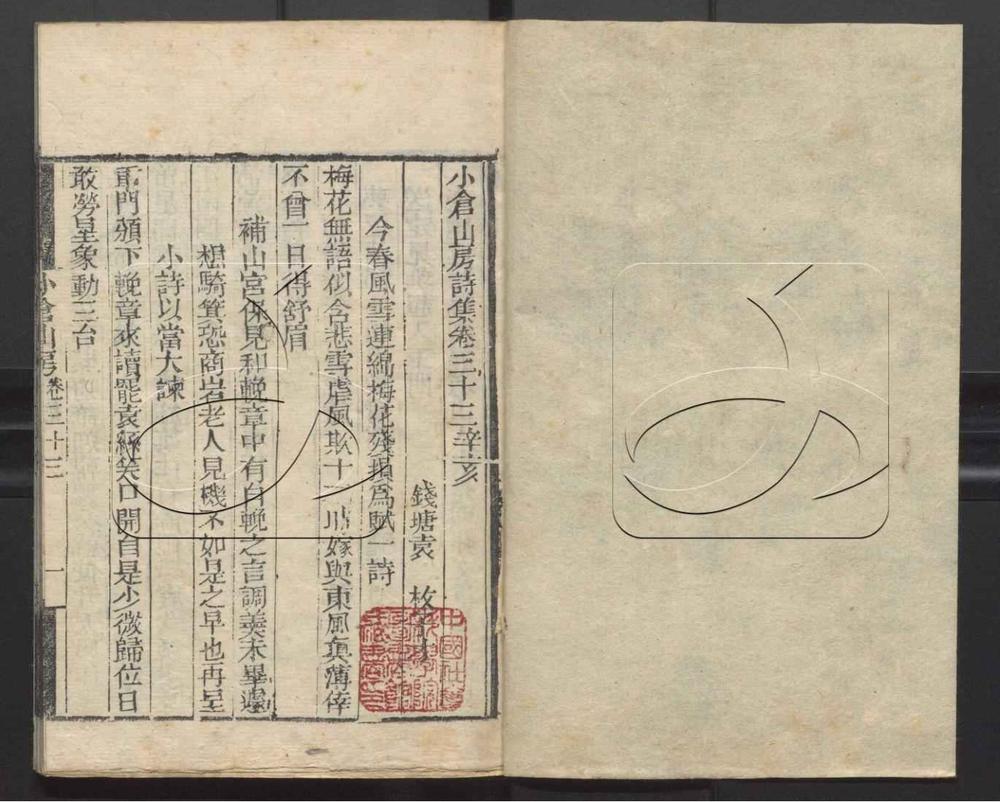 小倉山房詩集卷三十三辛亥
錢塘袁 枚子才
今春風雪連綿梅花殘損爲賦一詩
梅花無語似含悲雪虐風欺十二時嫁與東風真薄倖
不曾一日得舒眉
補山宮保見和輓章中有自輓之言調羹未畢遽
想騎箕恐商岩老人見機不如是之早也再呈
小詩以當大諫
軍門頒下輓章來讀罷袁絲笑口開自是少微歸位日
敢勞星象動三台
小倉山房 卷三十三
一